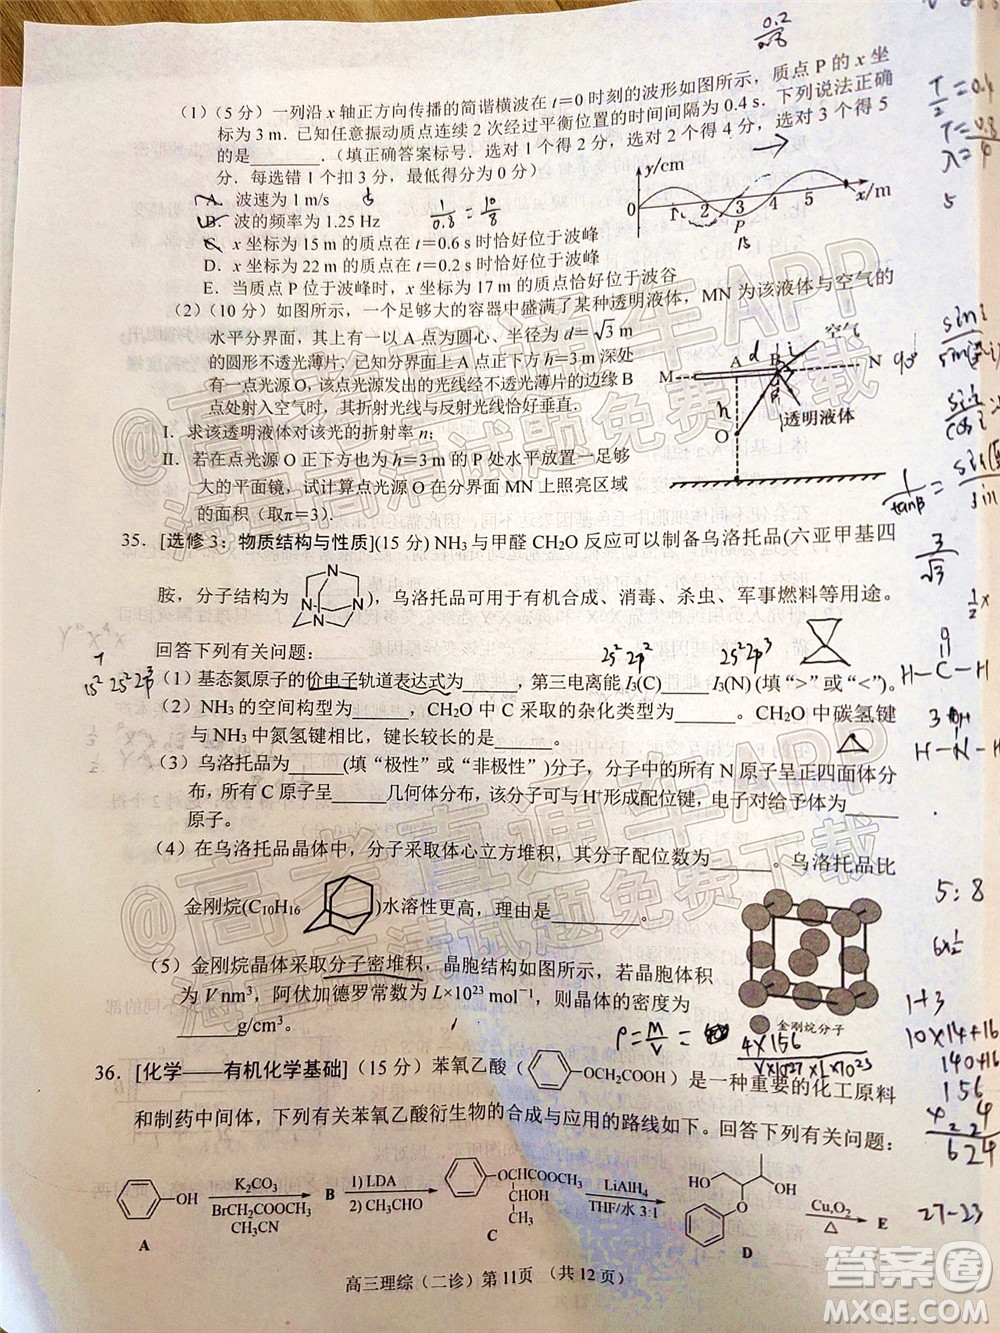 0.2
(1)(5 分)一列沿 x 轴正方向传播的简谐横波在 t=0 时刻的波形如图所示，质点 P 的 x 坐
标为 3 m. 已知任意振动质点连续 2 次经过平衡位置的时间间隔为 0.4 s. 下列说法正确
的是______.（填正确答案标号．选对 1 个得 2 分，选对 2 个得 4 分，选对 3 个得 5
分．每选错 1 个扣 3 分，最低得分为 0 分）
A．波速为 1 m/s
B．波的频率为 1.25 Hz
C．x 坐标为 15 m 的质点在 t=0.6 s 时恰好位于波峰
D．x 坐标为 22 m 的质点在 t=0.2 s 时恰好位于波峰
E．当质点 P 位于波峰时，x 坐标为 17 m 的质点恰好位于波谷
y/cm
0 1 2 3 4 5 x/m
P
1/0.8 = 10/8
(2)(10 分)如图所示，一个足够大的容器中盛满了某种透明液体，MN 为该液体与空气的
水平分界面，其上有一以 A 点为圆心、半径为 d=√3 m
的圆形不透光薄片．已知分界面上 A 点正下方 h=3 m 深处
有一点光源 O，点光源发出的光线经不透光薄片的边缘 B
点处射入空气时，其折射光线与反射光线恰好垂直.
I．求该透明液体对该光的折射率 n；
II．若在点光源 O 正下方也为 h=3 m 的 P 处水平放置一足够
大的平面镜，试计算点光源 O 在分界面 MN 上照亮区域
的面积（取π=3）.
空气
M A d B i N 90°
h
O
透明液体
35．[选修 3：物质结构与性质](15 分) NH3 与甲醛 CH2O 反应可以制备乌洛托品(六亚甲基四
胺，分子结构为 )，乌洛托品可用于有机合成、消毒、杀虫、军事燃料等用途。
回答下列有关问题：
1s² 2s² 2p³
2s² 2p² 2s² 2p³
（1）基态氮原子的价电子轨道表达式为______，第三电离能 I3(C)____I3(N) (填“>”或“<”)。
（2）NH3 的空间构型为______，CH2O 中 C 采取的杂化类型为______。CH2O 中碳氢键
与 NH3 中氮氢键相比，键长较长的是______。
（3）乌洛托品为______(填“极性”或“非极性”)分子，分子中的所有 N 原子呈正四面体分
布，所有 C 原子呈______几何体分布，该分子可与 H⁺形成配位键，电子对给予体为______
原子。
（4）在乌洛托品晶体中，分子采取体心立方堆积，其分子配位数为______。乌洛托品比
金刚烷(C10H16 )水溶性更高，理由是________。
（5）金刚烷晶体采取分子密堆积，晶胞结构如图所示，若晶胞体积
为 V nm³，阿伏加德罗常数为 L×10²³ mol⁻¹，则晶体的密度为
______g/cm³。
金刚烷分子
ρ = M/V =
4×156
36．[化学——有机化学基础]（15 分）苯氧乙酸（ OCH2COOH）是一种重要的化工原料
和制药中间体，下列有关苯氧乙酸衍生物的合成与应用的路线如下。回答下列有关问题：
OH
A
K2CO3
BrCH2COOCH3
CH3CN
B
1) LDA
2) CH3CHO
O-CHCOOCH3
CHOH
CH3
C
LiAlH4
THF/水 3:1
HO OH
O
D
Cu,O2
△
E
高三理综（二诊）第 11页 （共 12 页）
5:8
1+3
10×14+16
140+16
156
624
27-23
@高考直通车APP
海量高清试题免费下载
@高考直通车APP
海量高清试题免费下载
答案圈
MXQE.COM